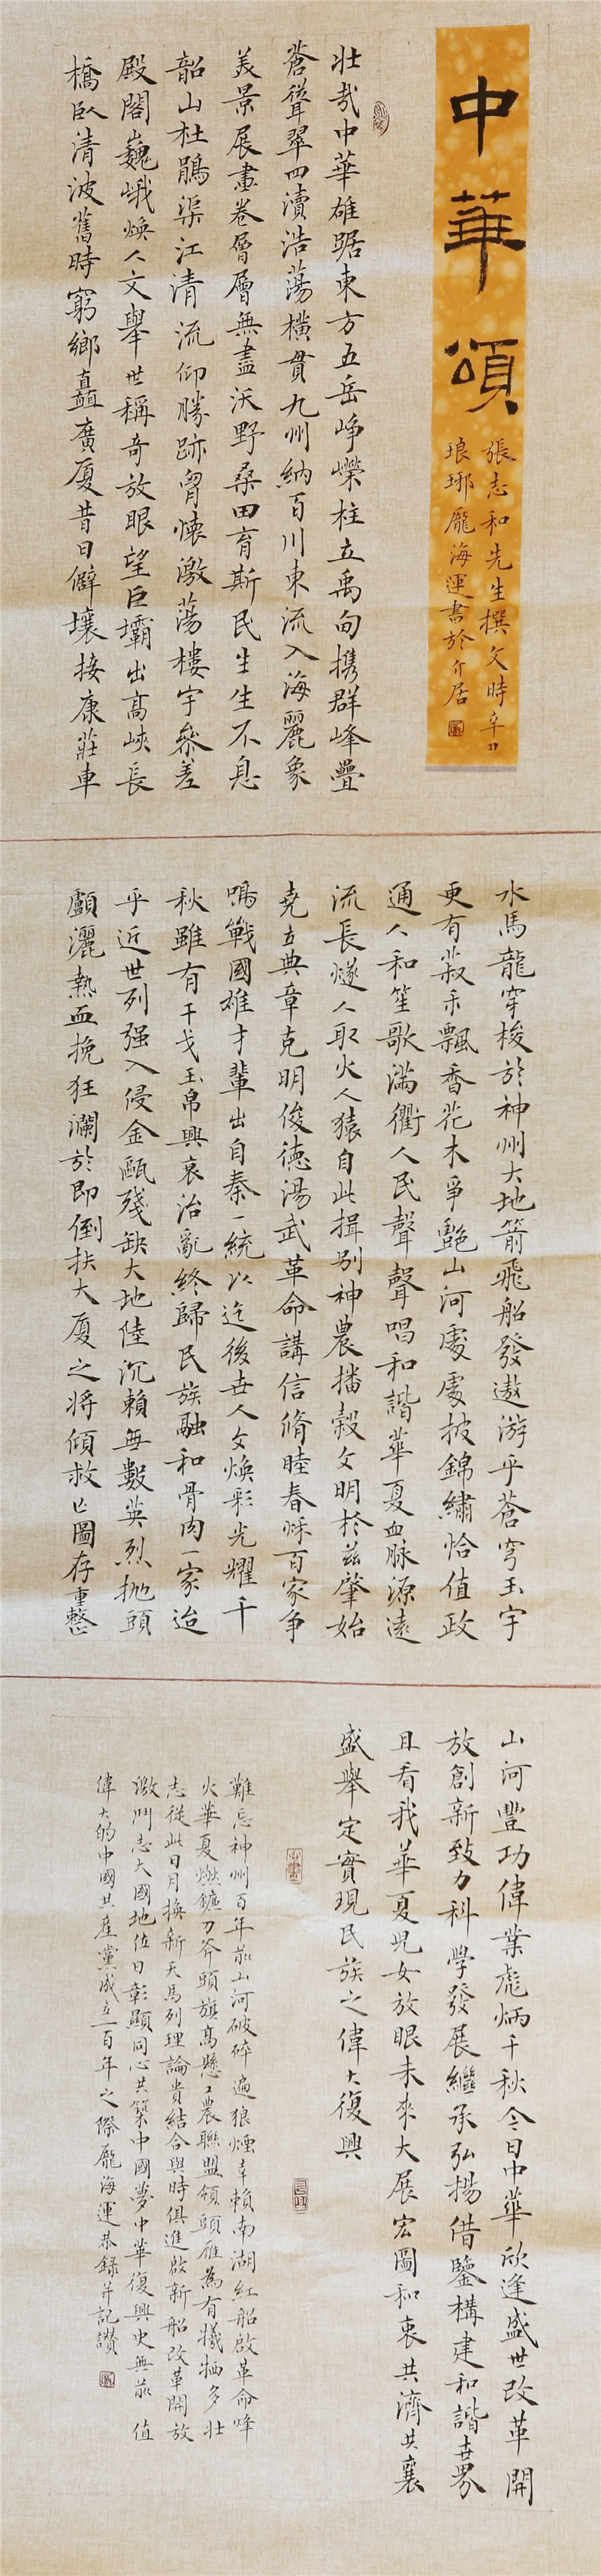 中華頌
張志和先生撰文時辛丑
琅琊龐海運書於介居
壯哉中華雄踞東方五岳崢嶸柱立禹甸携群峰疊
蒼聳翠四瀆浩蕩橫貫九州納百川東流入海麗象
美景展畫卷層層無盡沃野桑田育斯民生生不息
韶山杜鵑渠江清流仰勝跡胷懷激蕩樓宇參差
殿閣巍峨煥人文舉世稱奇放眼望巨壩出高峽長
橋臥清波舊時窮鄉矗廣厦昔日僻壤接康莊車
水馬龍穿梭於神州大地箭飛船發遨游乎蒼穹玉宇
更有菽禾飄香花木爭艷山河處處披錦繡恰值政
通人和笙歌滿衢人民聲聲唱和諧華夏血脉源遠
流長燧人取火人猿自此揖别神農播穀文明於兹肇始
堯立典章克明俊德湯武革命講信脩睦春秌百家争
鳴戰國雄才輩出自秦一統以迄後世人文煥彩光耀千
秋雖有干戈玉帛興衰治亂終歸民族融和骨肉一家迨
乎近世列强入侵金甌殘缺大地陸沉賴無數英烈抛頭
顱灑熱血挽狂瀾於即倒扶大厦之将傾救亡圖存重整
山河豐功偉業彪炳千秋今日中華欣逢盛世改革開
放創新致力科學發展繼承弘揚借鑒構建和諧世界
且看我華夏兒女放眼未來大展宏圖和衷共濟共襄
盛舉定實現民族之偉大復興
難忘神州百年前山河破碎遍狼煙幸賴南湖紅船啟革命烽
火華夏燃鐮刀斧頭旗高懸工農聯盟領頭雁為有犧牲多壯
志從此日月換新天馬列理論貴結合與時俱進啟新船改革開放
激鬥志大國地位日彰顯同心共築中國夢中華復興史無前 值
偉大的中國共產黨成立一百年之際龐海運恭録并記讚